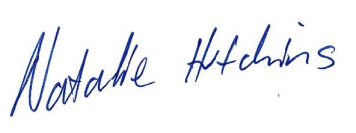 Natalie Hutchins